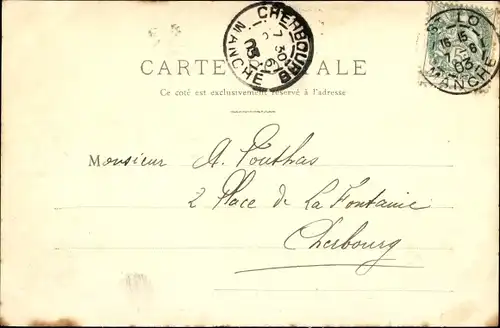 CHERBOURG
MANCHE
7 30
ST LO
16 5
6
03
MANCHE
CARTE POSTALE
Ce côté est exclusivement réservé à l'adresse
Monsieur A. Pouthas
2 Place de La Fontaine
Cherbourg